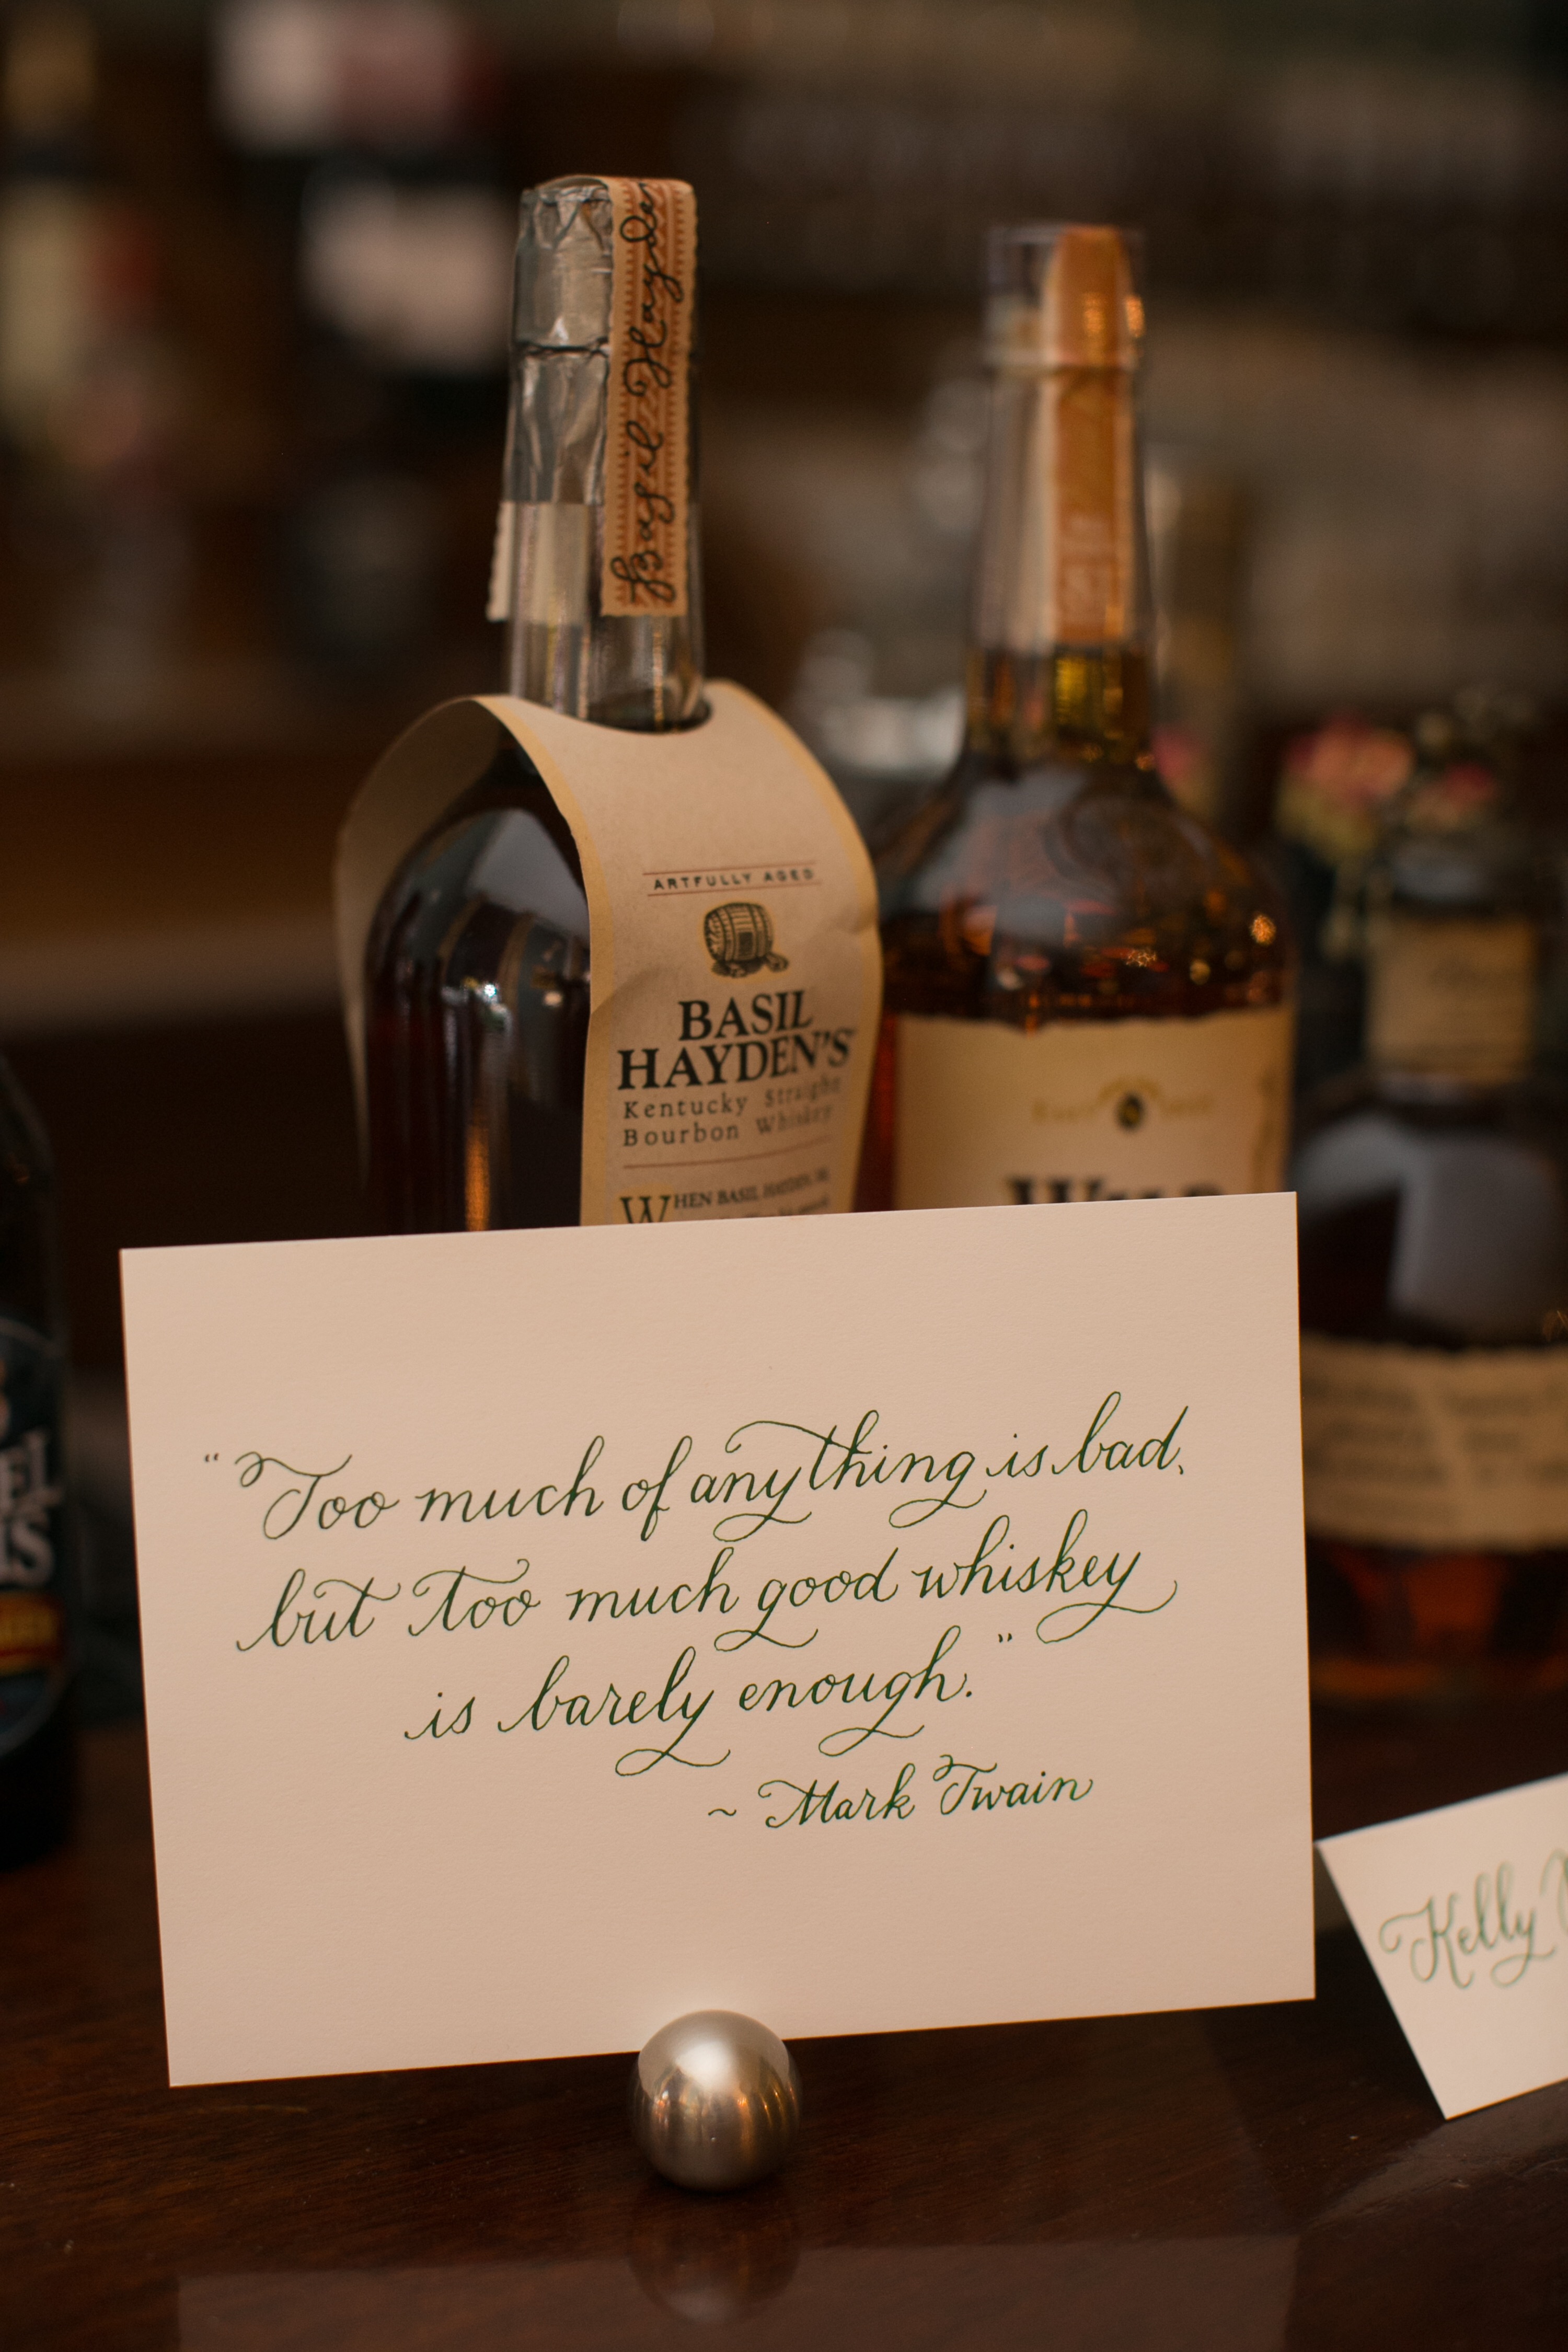 Basil Hayden
ARTFULLY AGED
BASIL
HAYDEN'S
Kentucky Straight
Bourbon Whiskey
WHEN BASIL HAYDEN, SR.
"Too much of anything is bad,
but too much good whiskey
is barely enough."
~ Mark Twain
Kelly